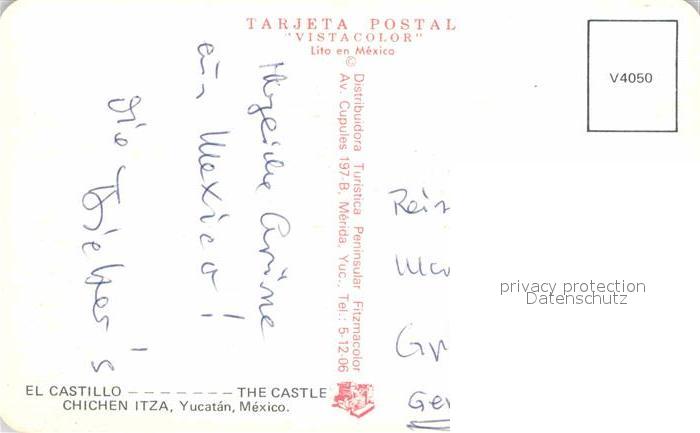 TARJETA POSTAL
"VISTACOLOR"
Lito en México
©
V4050
Distribuidora Turística Peninsular Fitzmacolor
Av. Cupules 197-B, Mérida, Yuc., Tel.: 5-12-06
Herzliche Grüsse
aus Mexico!
die
EL CASTILLO – – – – – – – THE CASTLE
CHICHEN ITZA, Yucatán, México.
privacy protection
Datenschutz